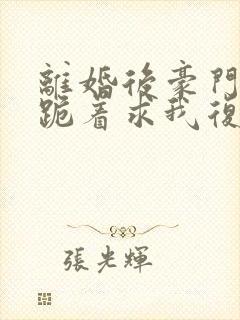 離婚後豪門
跪着求我復
張光輝